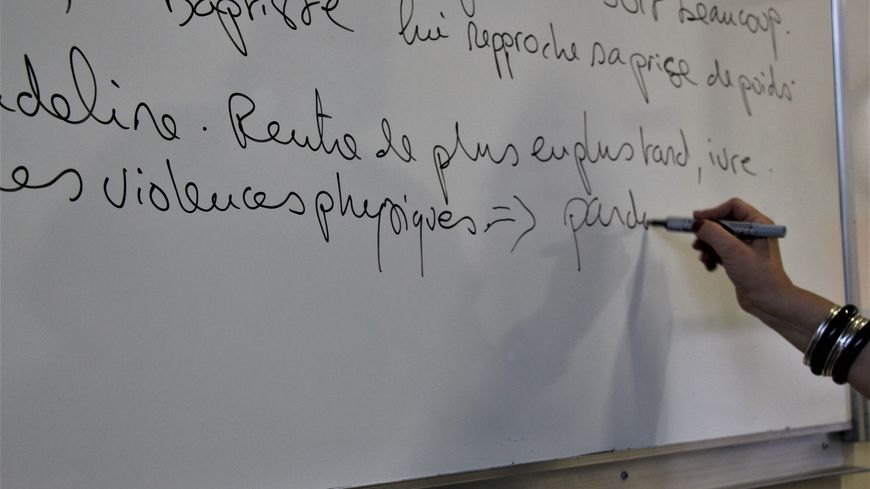 Baptiste sort beaucoup.
lui reproche sa prise de poids
deline. Rentre de plus en plus tard, ivre.
es violences physiques. => pardo